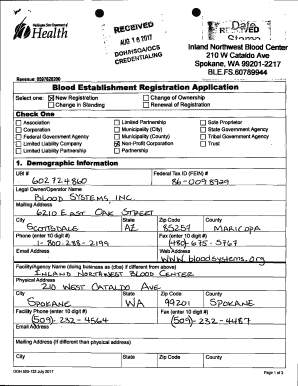 Washington State Department of
Health
RECEIVED
AUG 16 2017
DOH/HSQA/OCS
CREDENTIALING
Date
RECEIVED
Stamp
Inland Northwest Blood Center
210 W Cataldo Ave
Spokane, WA 99201-2217
BLE.FS.60789944
Revenue: 0597620200
Blood Establishment Registration Application
Select one: New Registration Change of Ownership
Change in Standing Renewal of Registration
Check One
Association Limited Partnership Sole Proprietor
Corporation Municipality (City) State Government Agency
Federal Government Agency Municipality (County) Tribal Government Agency
Limited Liability Company Non-Profit Corporation Trust
Limited Liability Partnership Partnership
1. Demographic Information
UBI # Federal Tax ID (FEIN) #
602774860 86-0098929
Legal Owner/Operator Name
BLOOD SYSTEMS, INC.
Mailing Address
6210 EAST OAK STREET
City State Zip Code County
SCOTTSDALE AZ 85257 MARICOPA
Phone (enter 10 digit #) Fax (enter 10 digit #)
1-800-288-2199 (480)-675-5767
Email Address Web Address
www.bloodsystems.org
Facility/Agency Name (doing business as (dba) if different from above)
INLAND NORTHWEST BLOOD CENTER
Physical Address
210 WEST CATALDO AVE
City State Zip Code County
SPOKANE WA 99201 SPOKANE
Facility Phone (enter 10 digit #) Fax (enter 10 digit #)
(509)-232-4564 (509)-232-4487
Email Address
Mailing Address (if different than physical address)
City State Zip Code County
DOH 505-133 July 2017 Page 1 of 3